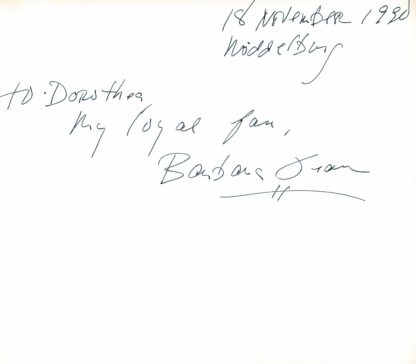 18 November 1990
Middelburg
to Dorothea
My loyal fan,
Barbara